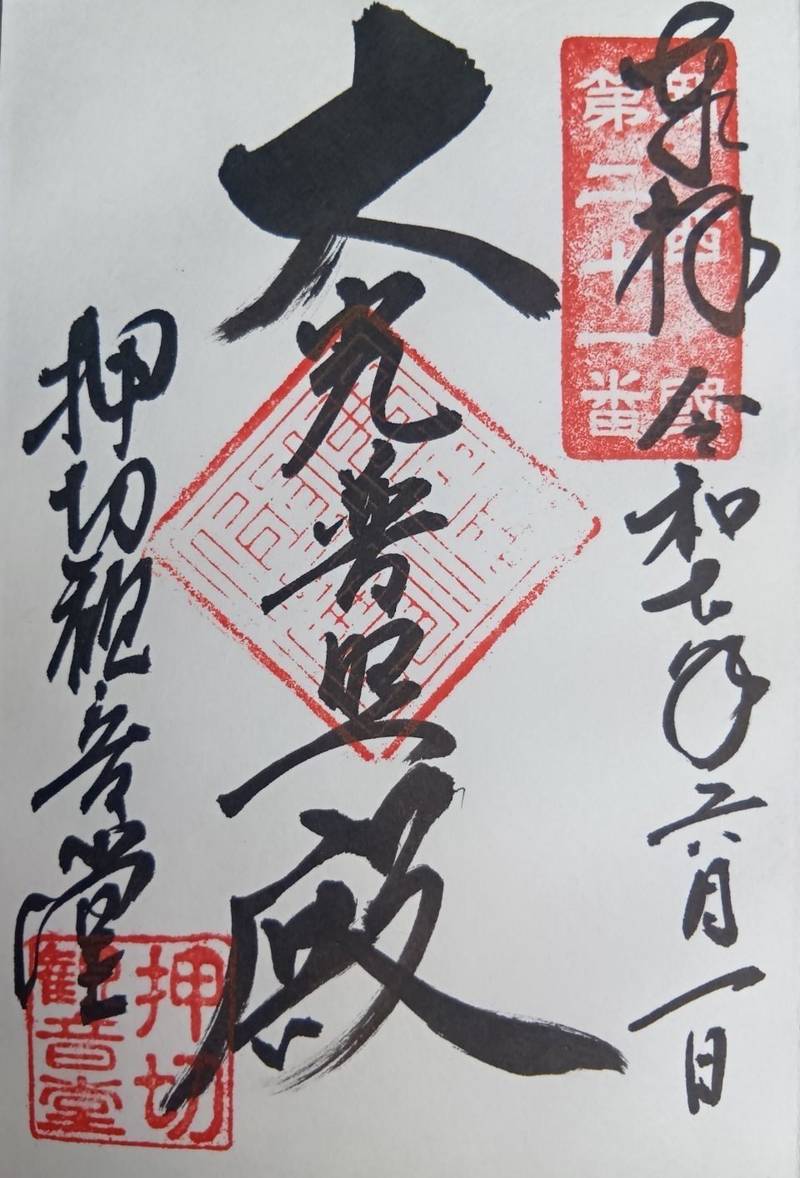 奉拝 令和七年六月一日
西國
第二十一番
大光普照殿
押切観音堂
押切
觀音堂